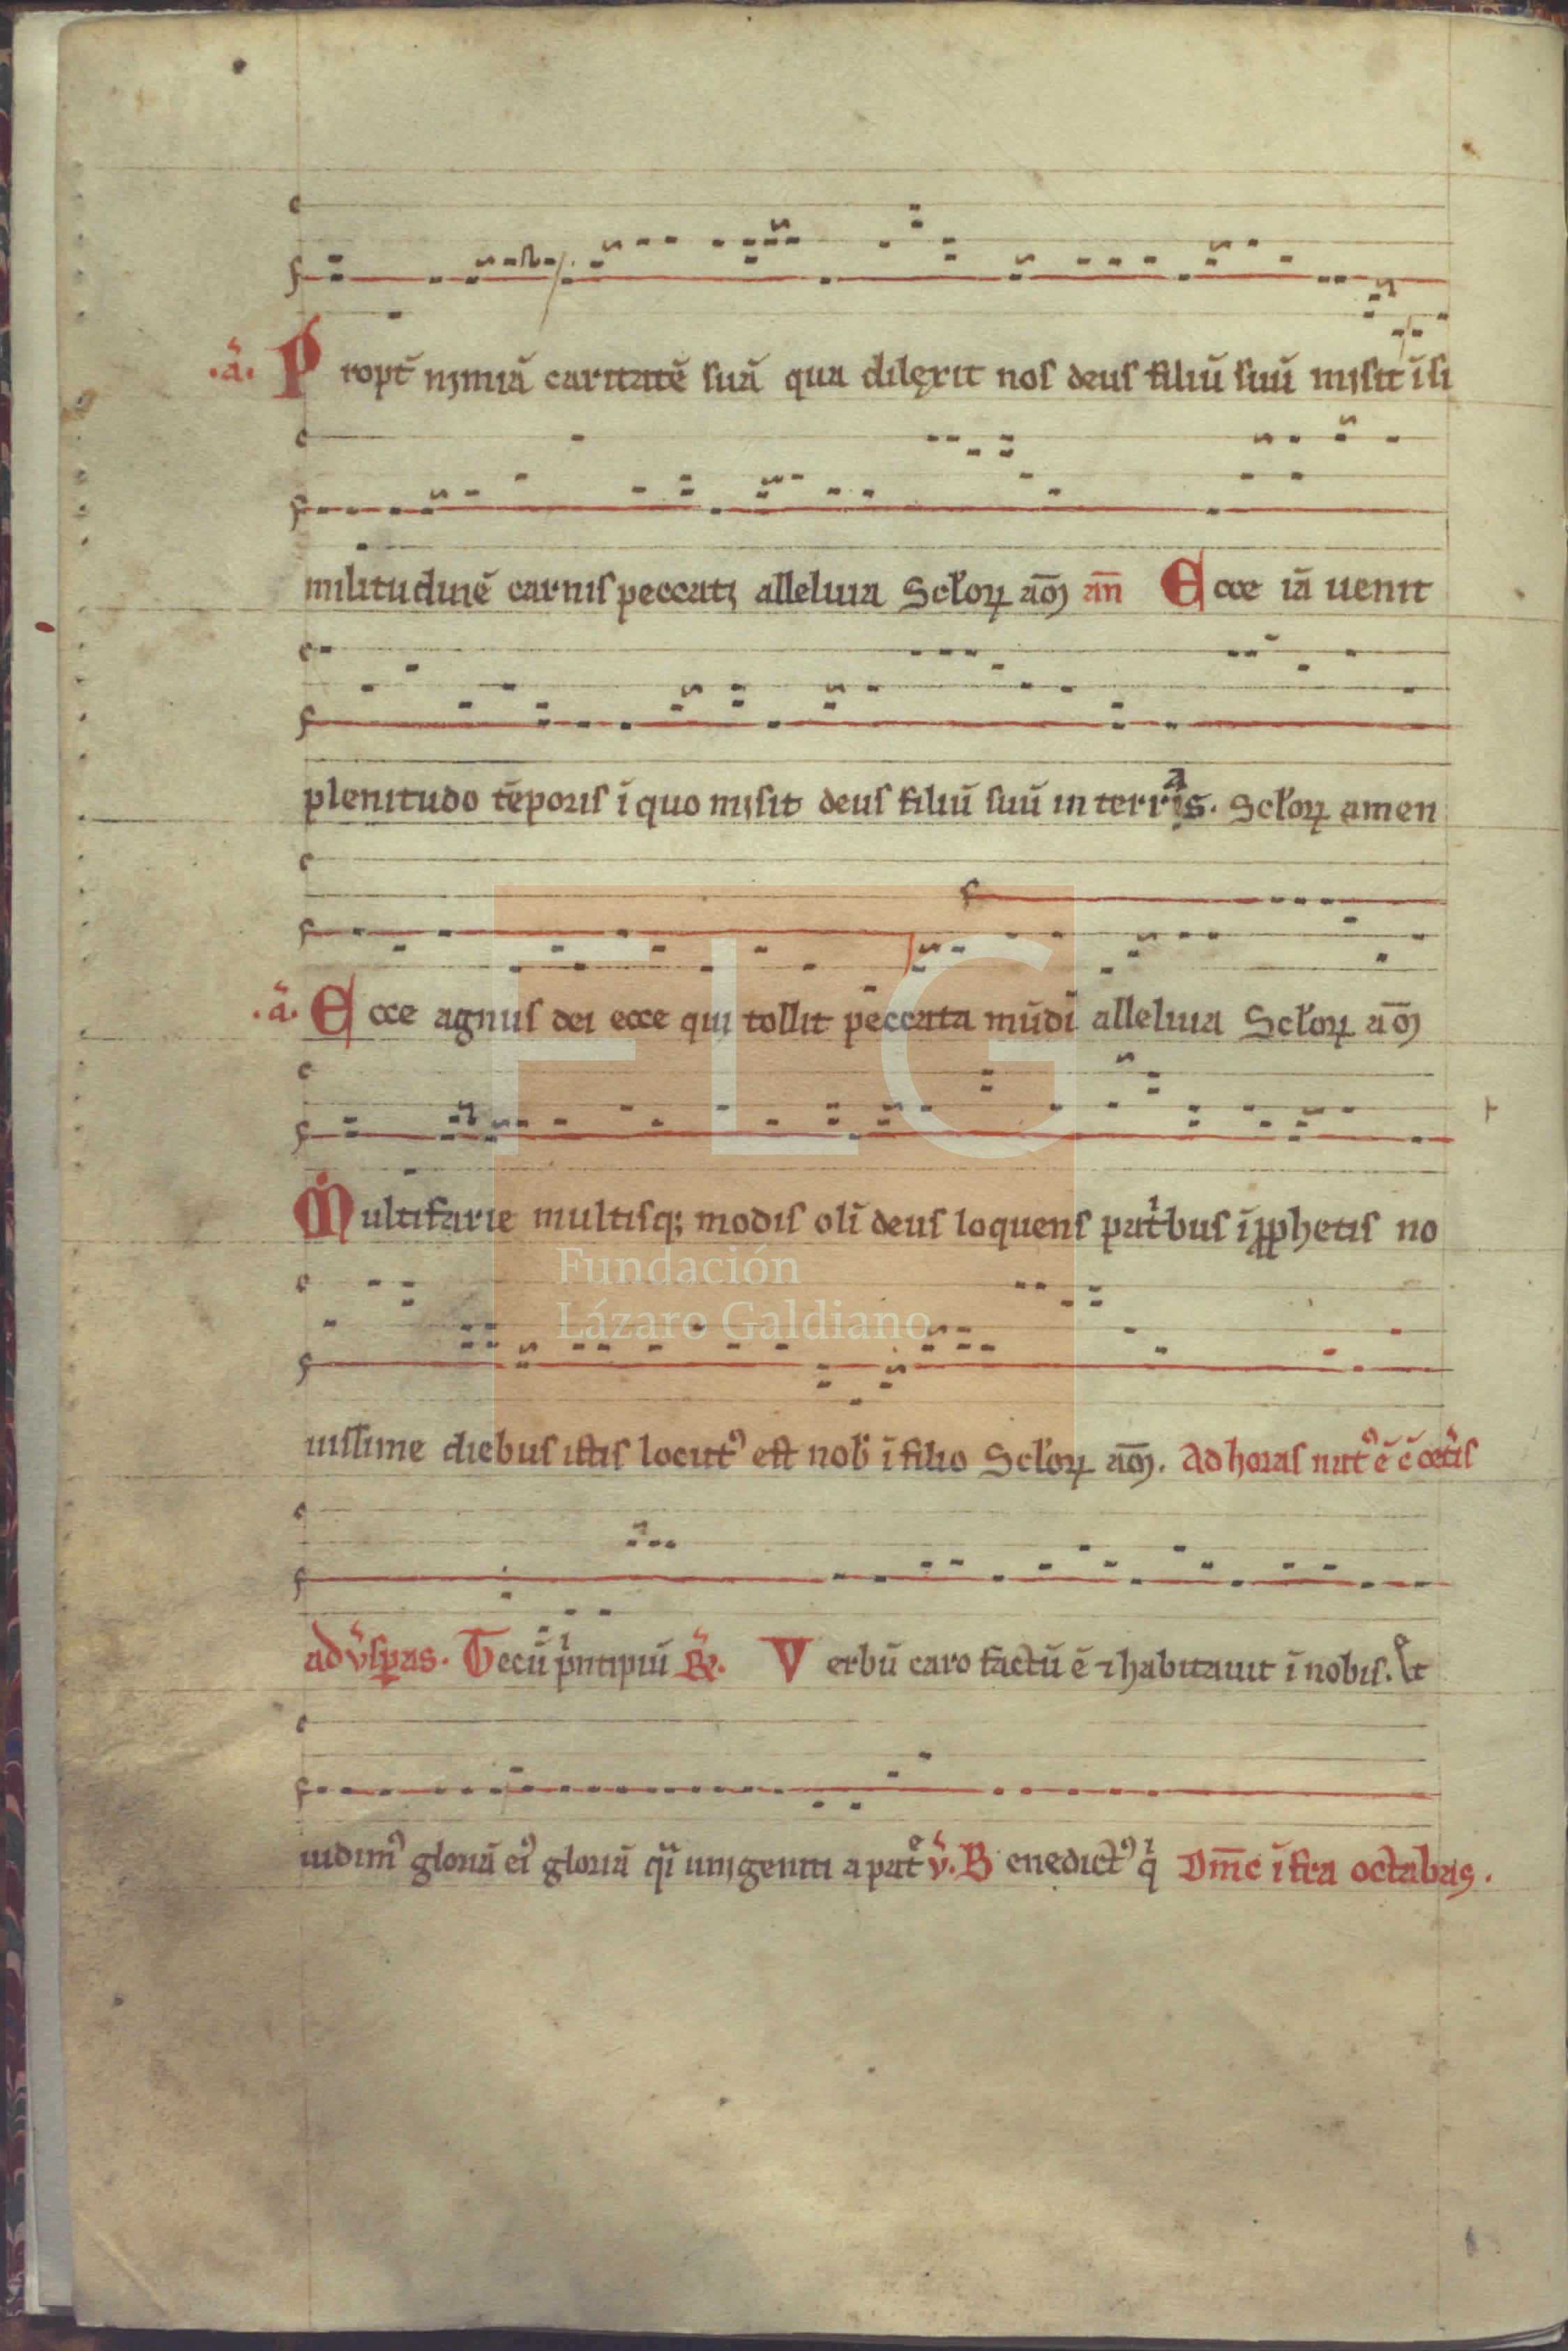 .a᷑. Propt̄ nimiā caritatē suā qua dilexit nos deus filiū suū misit ī si
militudinē carnis peccati alleluia Scl̄oꝝ am̄ an̄ Ecce iā uenit
plenitudo tēporis ī quo misit deus filiū suū in terris. Scl̄oꝝ amen
.a᷑. Ecce agnus dei ecce qui tollit peccata mūdi alleluia Scl̄oꝝ am̄
Multifarie multisq; modis olī deus loquens patͥbus ī ꝓphetis no
uissime diebus istis locutꝰ est nob̄ ī filio Scl̄oꝝ am̄. Ad horas natꝰ ē
ad ūsꝑas. Tecū pͥncipiū ℟. Verbū caro factū ē ⁊ habitauit ī nobis. Et
uidimꝰ gloriā eiꝰ gloriā qͣi unigeniti a patͤ v̄. Benedictꝰ qͥ Dn̄ic īfra octabas.
FLG
Fundación
Lázaro Galdiano